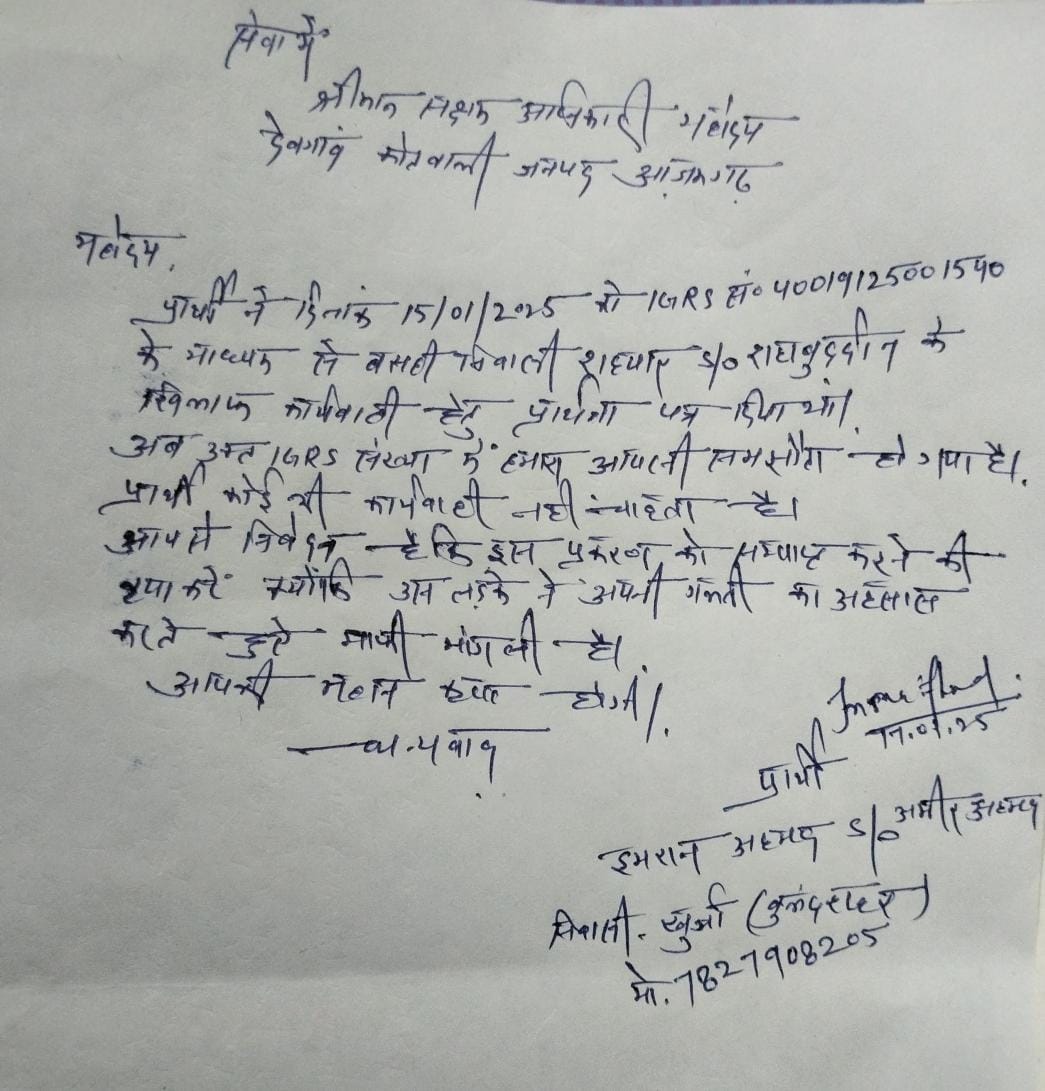 सेवा में
श्रीमान सक्षम अधिकारी महोदय
देवगांव कोतवाली जनपद आज़मगढ़
महोदय,
प्रार्थी ने दिनांक 15/01/2025 को IGRS सं० 40019125001540
के माध्यम से बसही निवासी शहयार S/o शहाबुद्दीन के
खिलाफ कार्यवाही हेतु प्रार्थना पत्र दिया था।
अब उक्त IGRS संख्या में हमारा आपसी समझौता हो गया है।
प्रार्थी कोई भी कार्यवाही नहीं चाहता है।
आपसे निवेदन है कि इस प्रकरण को समाप्त करने की
कृपा करें क्योंकि उस लड़के ने अपनी गलती का अहसास
करते हुते माफी मांग ली है।
आपकी महान कृपा होगी।
धन्यवाद
17.01.25
प्रार्थी
इमरान अहमद S/o अमीर अहमद
निवासी. खुर्जा (बुलंदशहर)
मो. 7827908205